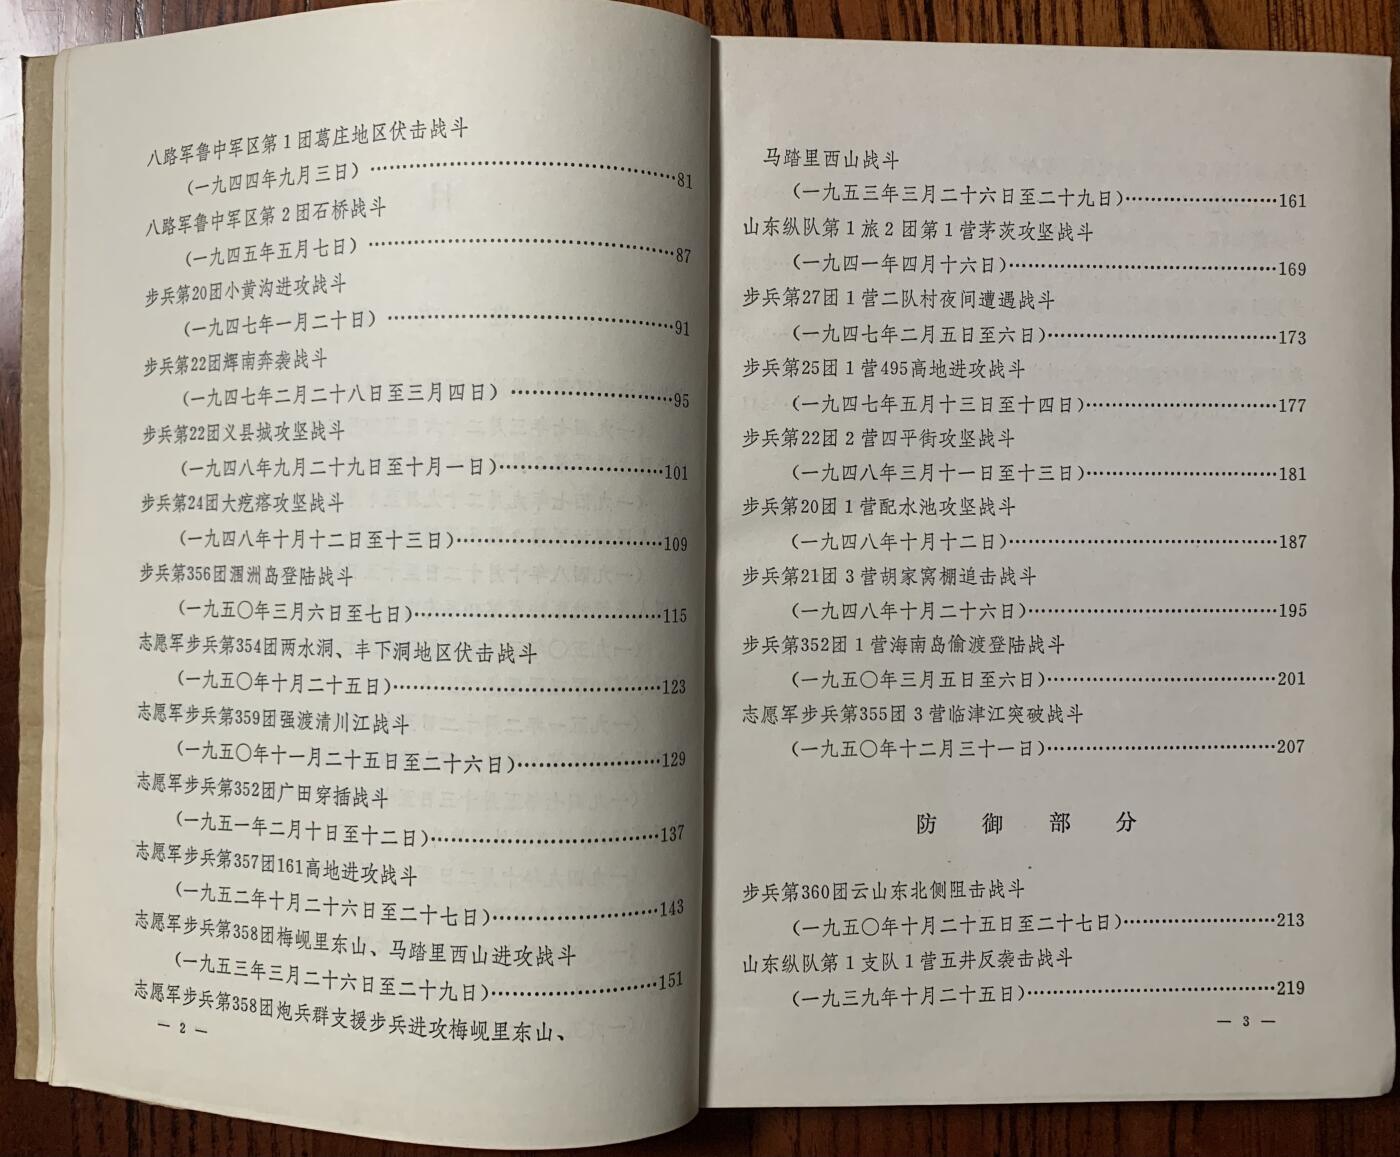 八路军鲁中军区第1团葛庄地区伏击战斗
(一九四四年九月三日)……………………………………81
八路军鲁中军区第2团石桥战斗
(一九四五年五月七日)……………………………………87
步兵第20团小黄沟进攻战斗
(一九四七年一月二十日)…………………………………91
步兵第22团辉南奔袭战斗
(一九四七年二月二十八日至三月四日)…………………95
步兵第22团义县城攻坚战斗
(一九四八年九月二十九日至十月一日)…………………101
步兵第24团大疙瘩攻坚战斗
(一九四八年十月十二日至十三日)………………………109
步兵第356团涠洲岛登陆战斗
(一九五〇年三月六日至七日)……………………………115
志愿军步兵第354团两水洞、丰下洞地区伏击战斗
(一九五〇年十月二十五日)………………………………123
志愿军步兵第359团强渡清川江战斗
(一九五〇年十一月二十五日至二十六日)………………129
志愿军步兵第352团广田穿插战斗
(一九五一年二月十日至十二日)…………………………137
志愿军步兵第357团161高地进攻战斗
(一九五二年十月二十六日至二十七日)…………………143
志愿军步兵第358团梅岘里东山、马踏里西山进攻战斗
(一九五三年三月二十六日至二十九日)…………………151
志愿军步兵第358团炮兵群支援步兵进攻梅岘里东山、
— 2 —
马踏里西山战斗
(一九五三年三月二十六日至二十九日)…………………161
山东纵队第1旅2团第1营茅茨攻坚战斗
(一九四一年四月十六日)…………………………………169
步兵第27团1营二队村夜间遭遇战斗
(一九四七年二月五日至六日)……………………………173
步兵第25团1营495高地进攻战斗
(一九四七年五月十三日至十四日)………………………177
步兵第22团2营四平街攻坚战斗
(一九四八年三月十一日至十三日)………………………181
步兵第20团1营配水池攻坚战斗
(一九四八年十月十二日)…………………………………187
步兵第21团3营胡家窝棚追击战斗
(一九四八年十月二十六日)………………………………195
步兵第352团1营海南岛偷渡登陆战斗
(一九五〇年三月五日至六日)……………………………201
志愿军步兵第355团3营临津江突破战斗
(一九五〇年十二月三十一日)……………………………207
防御部分
步兵第360团云山东北侧阻击战斗
(一九五〇年十月二十五日至二十七日)…………………213
山东纵队第1支队1营五井反袭击战斗
(一九三九年十月二十五日)………………………………219
— 3 —